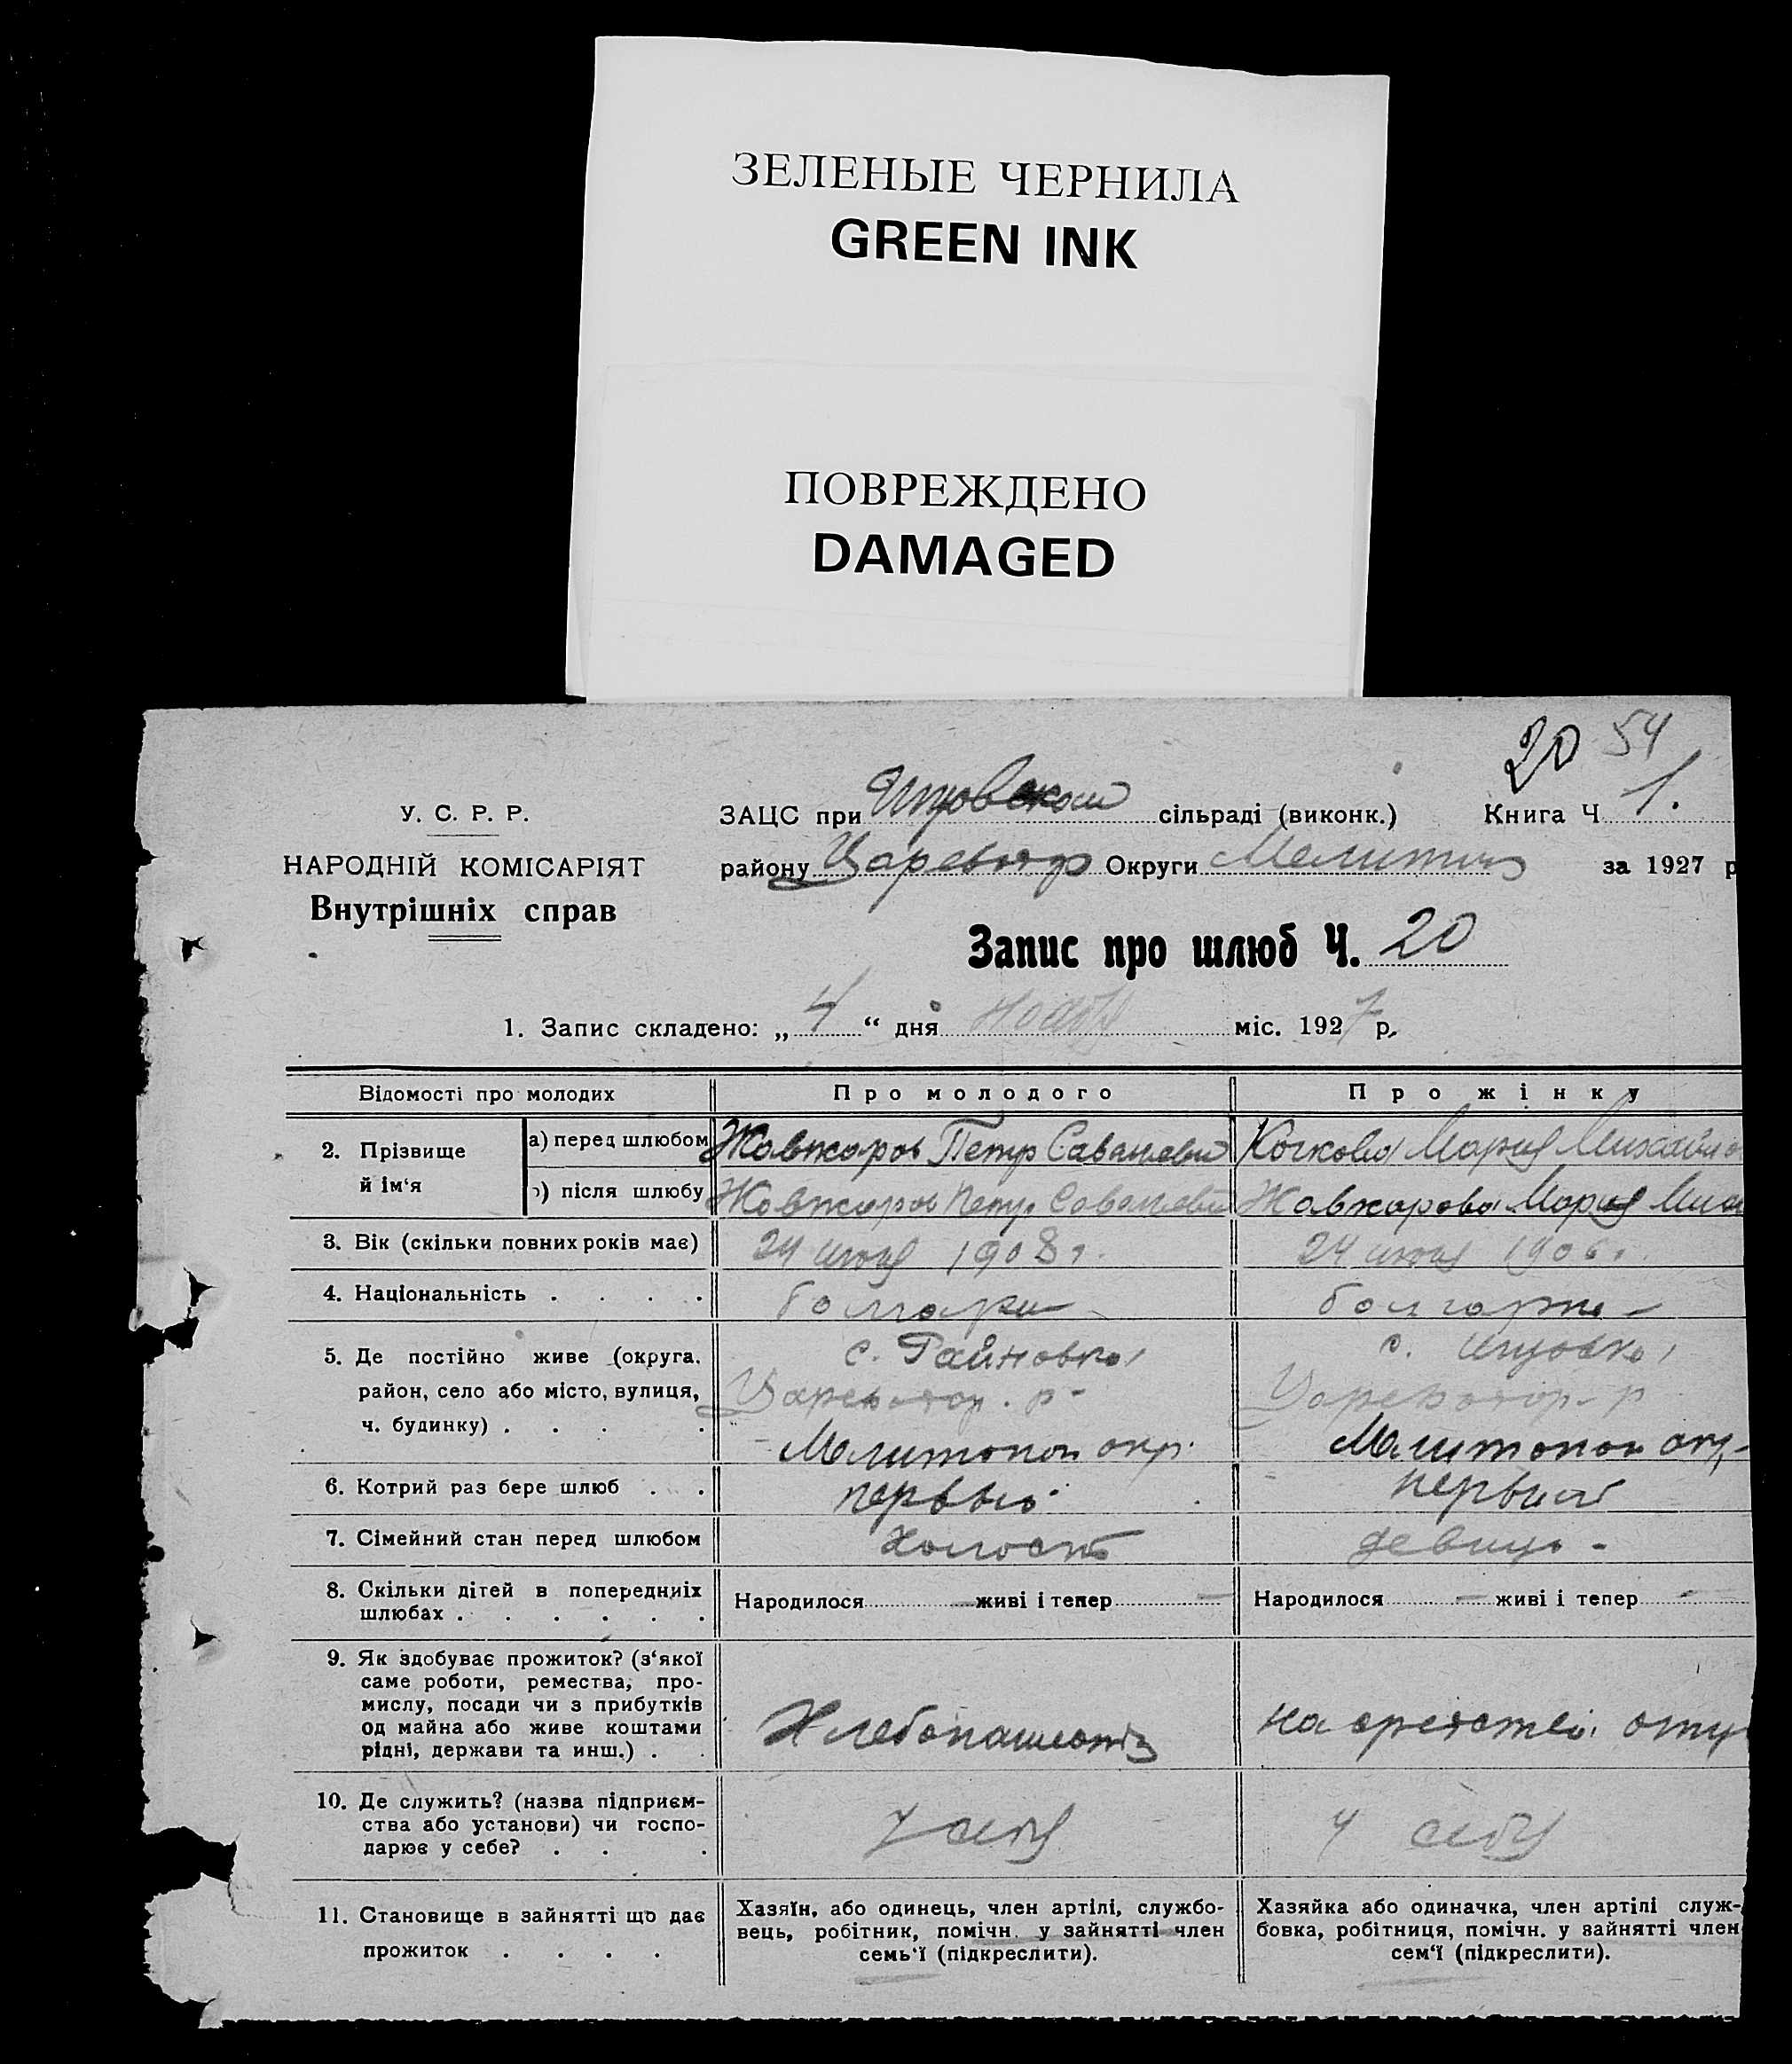 ЗЕЛЕНЫЕ ЧЕРНИЛА
GREEN INK
ПОВРЕЖДЕНО
DAMAGED
20 54
У. С. Р. Р.
НАРОДНІЙ КОМІСАРІЯТ
Внутрішніх справ
ЗАЦС при сільраді (виконк.) Книга Ч 1.
району Округи за 1927 р
Запис про шлюб Ч. 20
1. Запис складено: „ 4 “ дня міс. 1927 р.
Відомості про молодих Про молодого Про жінку
2. Прізвище й ім‘я
а) перед шлюбом Жавжаров Петр Кочкова Мария
) після шлюбу Жавжаров Петр Жавжарова Мария
3. Вік (скільки повних років має) 24 1908 г. 24
4. Національність . . . . болгарин болгарка
5. Де постійно живе (округа, с. Райновка с.
район, село або місто, вулиця, р- р
ч. будинку) . . . . Мелитопол окр. Мелитопол окр-
6. Котрий раз бере шлюб . . первый первый
7. Сімейний стан перед шлюбом холост девица -
8. Скільки дітей в попередниіх Народилося — живі і тепер — Народилося — живі і тепер -
шлюбах . . . . . .
9. Як здобуває прожиток? (з‘якої
саме роботи, ремества, про-
мислу, посади чи з прибутків
од майна або живе коштами Хлебопашеств на
рідні, держави та инш.) . .
10. Де служить? (назва підприєм-
ства або установи) чи госпо- у себя у себя
дарює у себе? . . .
11. Становище в зайнятті що дає
прожиток . . . .
Хазяїн, або одинець, член артілі, службо-
вець, робітник, помічн. у зайнятті член
семь‘ї (підкреслити).
Хазяйка або одиначка, член артілі служ-
бовка, робітниця, помічн. у зайнятті член
сем‘ї (підкреслити).